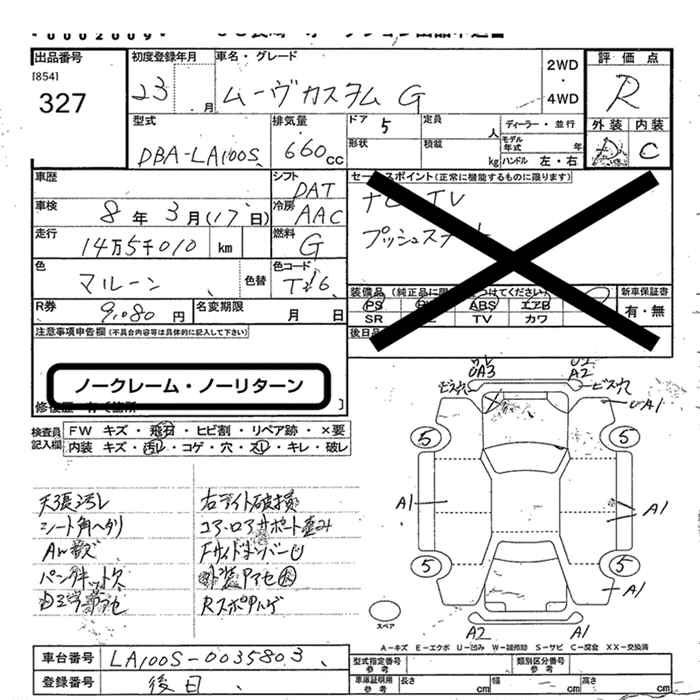 出品番号
[854]
327
初度登録年月
23 月
車名・グレード
ムーヴカスタム G
2WD
・
4WD
評価点
R
外装 内装
D C
型式
DBA-LA100S
排気量
660cc
ドア 5
定員 人
ディーラー・並行
形状
積載 kg
モデル年式 年
ハンドル 左・右
車歴
シフト
DAT
車検
8年3月(17日)
冷房
AAC
走行
14万5千010 km
燃料
G
色
マルーン
色替
色コード
R券
9,080 円
名変期限
月 日
セールスポイント(正常に機能するものに限ります)
ナビ TV
プッシュスタート
新車保証書
有・無
PS ABS エアB
SR TV カワ
注意事項申告欄(不具合内容等は具体的に記入して下さい)
ノークレーム・ノーリターン
検査員記入欄
FW キズ・飛石・ヒビ割・リペア跡・×要
内装 キズ・汚レ・コゲ・穴・スレ・キレ・破レ
天張汚レ
シート角ヘタリ
AWキズ
パンクキット欠
右ライト破損
コアロアサポート歪み
外装アセ大
ビス穴
UA3
A2
ビス穴
UA1
5
5
A1
A1
5
5
A1
A2
A1
スペア
A-キズ E-エクボ U-凹み W-補修跡 S-サビ C-腐食 XX-交換済
車台番号
LA100S-0035803
登録番号
後日
型式指定番号
参考
類別区分番号
参考
車庫証明用
参考
長さ cm
幅 cm
高さ cm